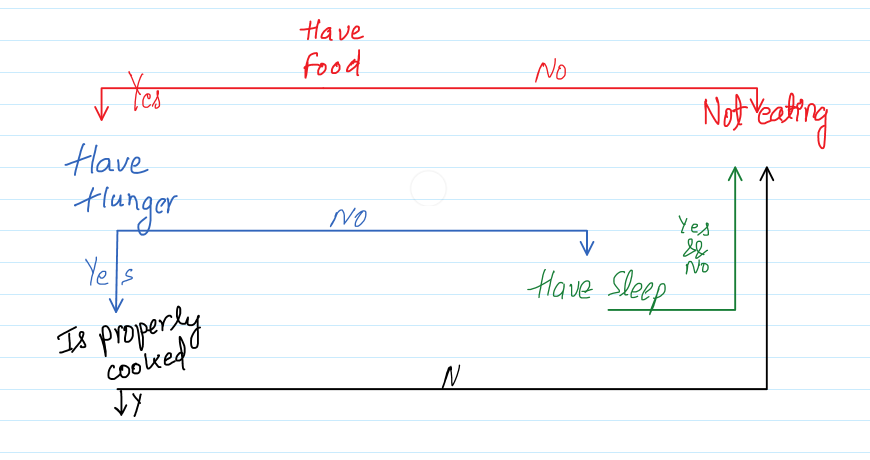 Have
food
Yes
No
Not eating
Have
Hunger
No
Yes
Yes
&&
No
Have Sleep
Is properly
cooked
N
Y